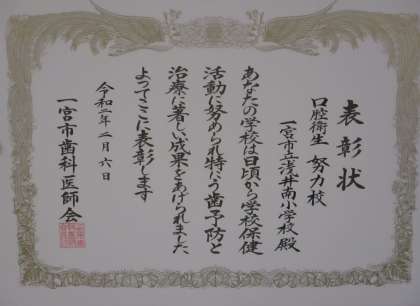 表彰状
口腔衛生 努力校
一宮市立浅井南小学校 殿
あなたの学校は日頃から学校保健
活動に努められ特にう歯予防と
治療に著しい成果をあげられました
よってここに表彰します
令和二年二月六日
一宮市歯科医師会